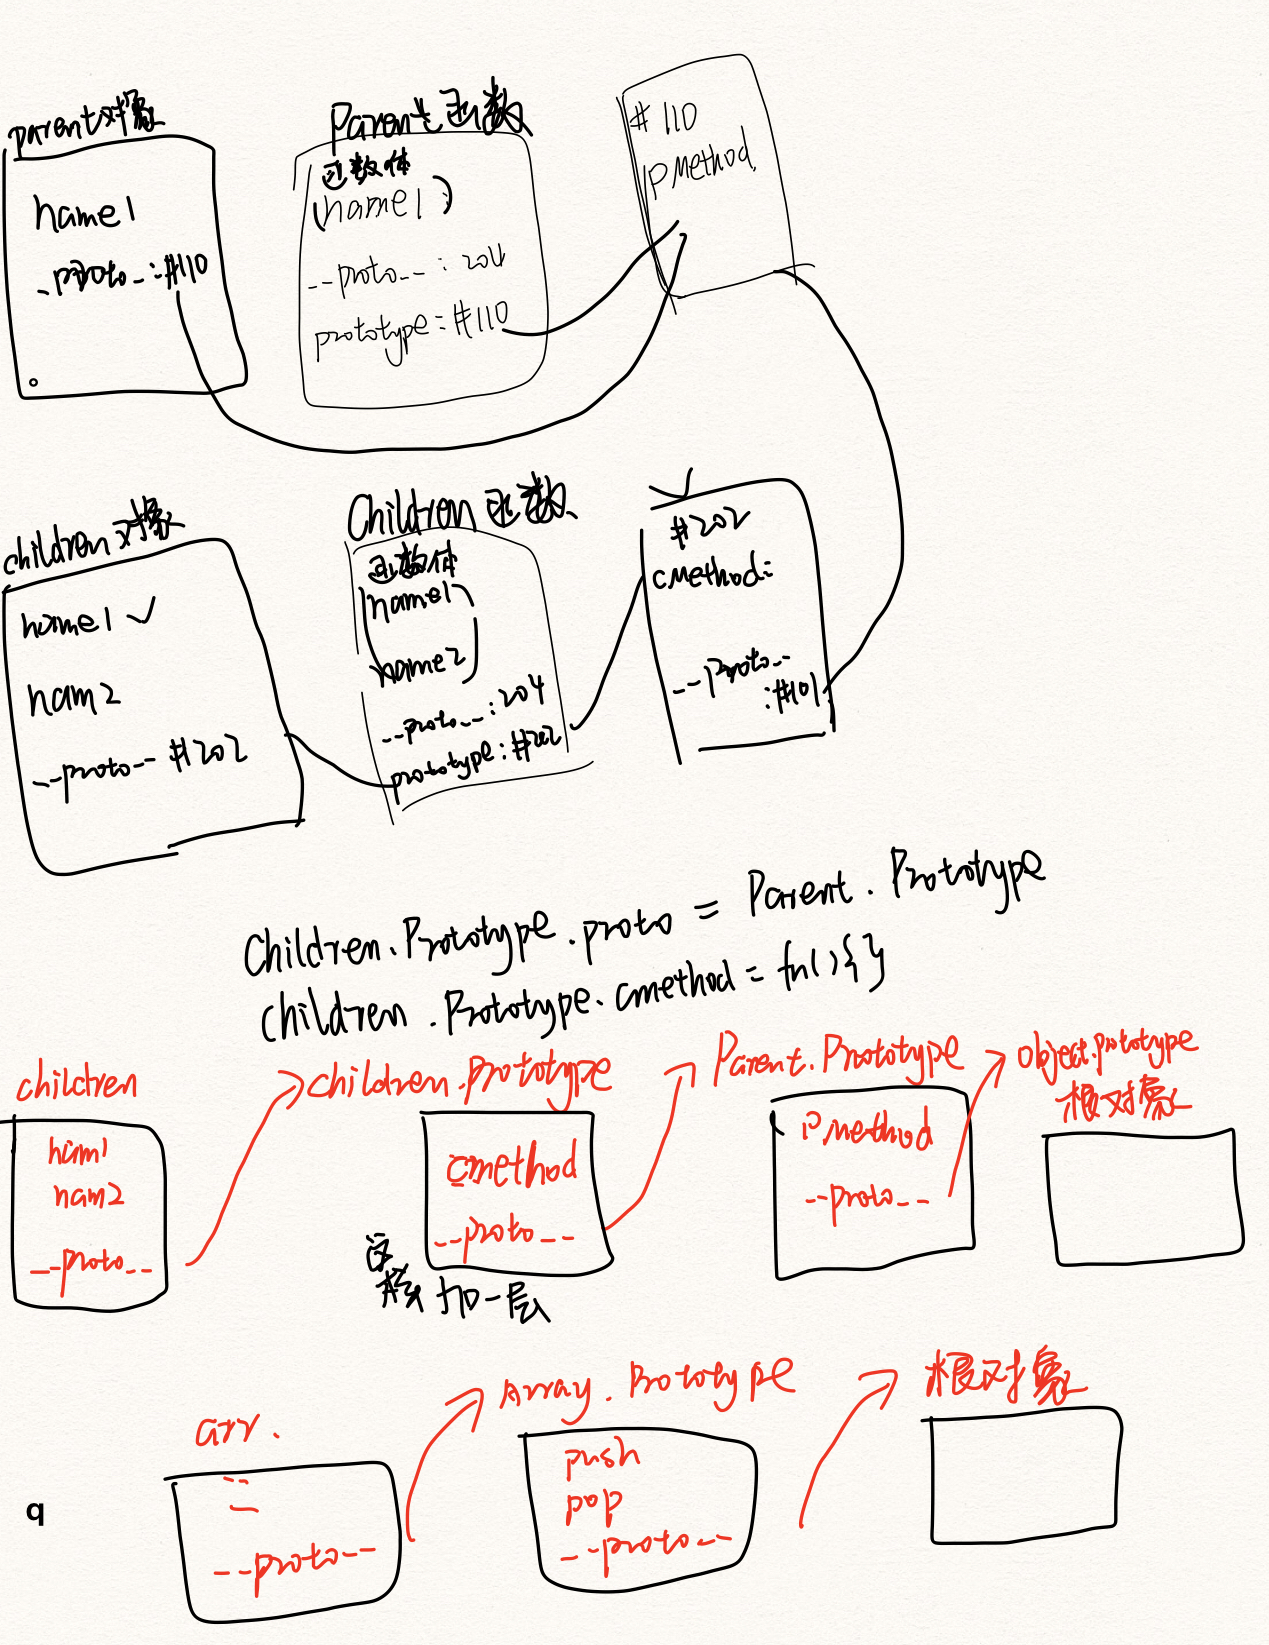 parent对象
name1
_proto_:#110
Parent函数
函数体
(name1)
__proto__: 204
prototype:#110
#110
pmethod
children对象
name1 ✓
nam2
__proto__ #202
Children函数
函数体
name1
name2
__proto__:204
prototype:#202
✓
#202
cmethod:
__proto__
:#101
Children.Prototype.proto = Parent.Prototype
children.Prototype.cmethod = fn(){}
children
nam1
nam2
__proto__
children.Prototype
cmethod
__proto__
加一层
Parent.Prototype
Pmethod
__proto__
object.prototype
根对象
arr.
__proto__
Array.Prototype
push
pop
__proto__
根对象
q